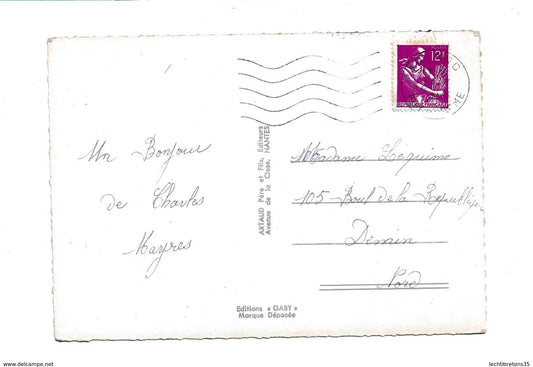 12F
Un Bonjour
de Charles
Mayres
ARTAUD Père et Fils, Editeurs
Avenue de la Close, NANTES
Madame Lequime
105 - Boul de la République
Denain
Nord
Editions « GABY »
Marque Déposée
www.delcampe.net
lechtibretons35